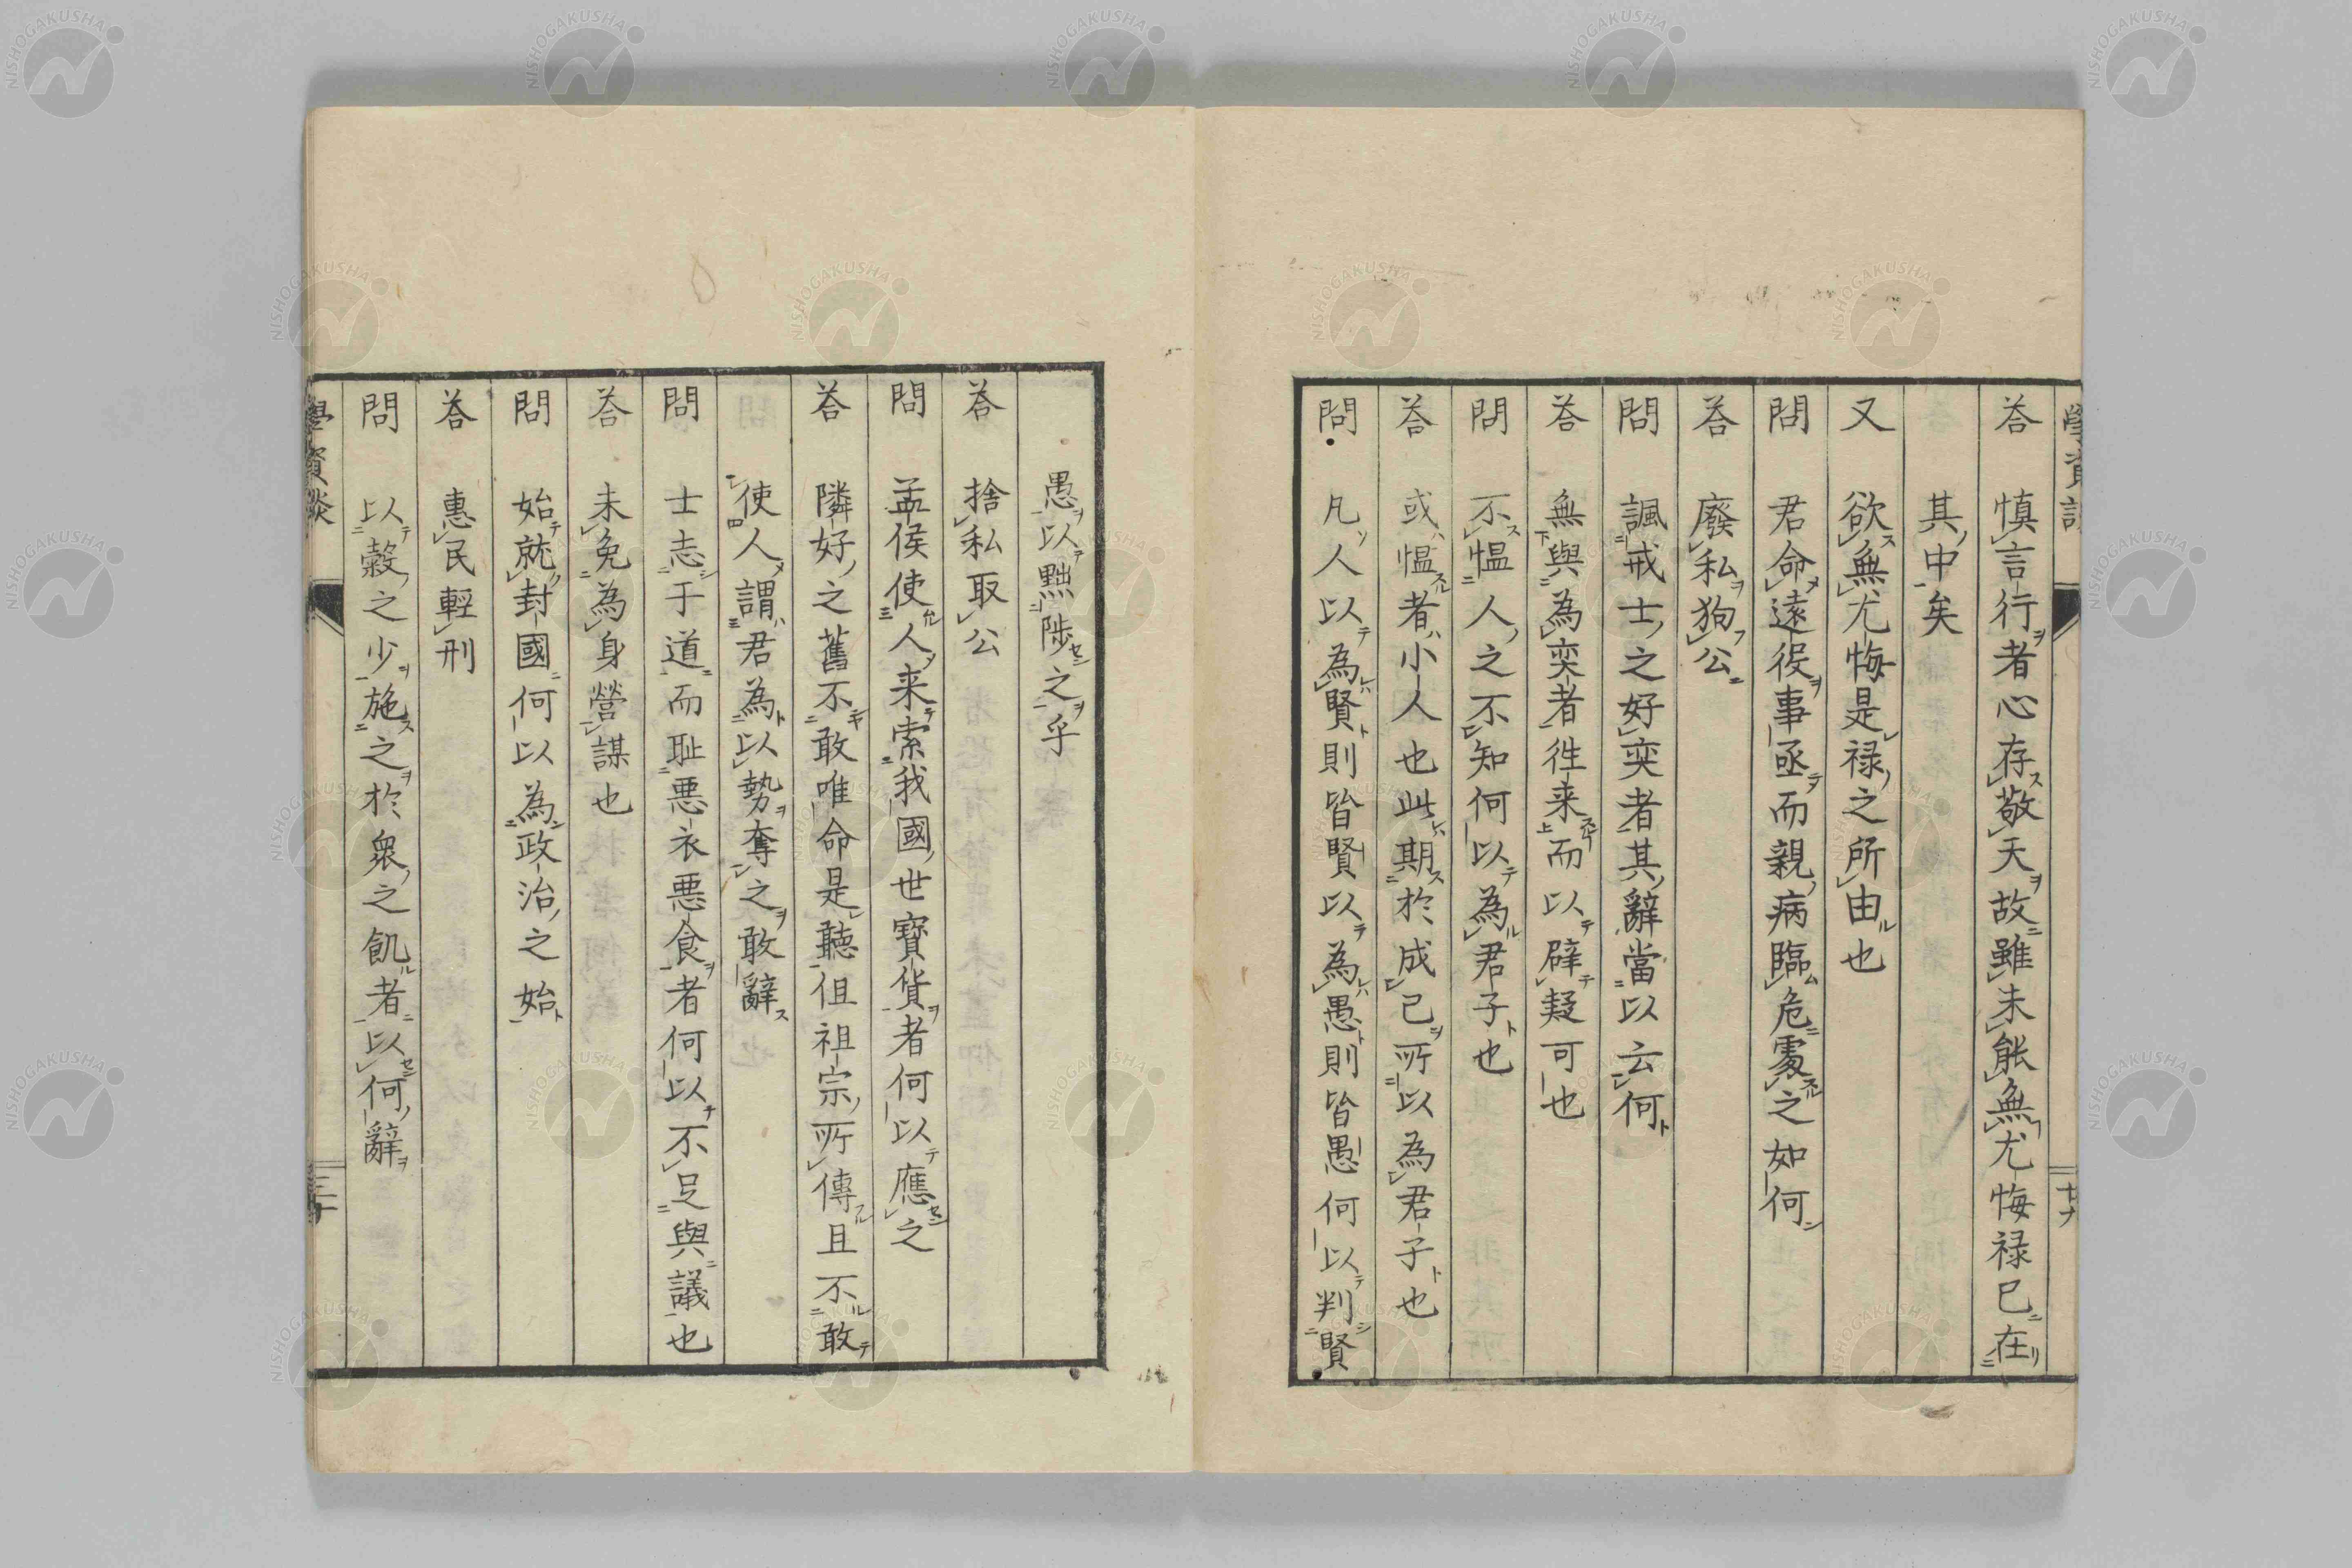 答 慎言行者心存敬天故雖未能無尤悔禄已在
其中矣
又 欲無尤悔是禄之所由也
問 君命遠役事亟而親病臨危處之如何
答 廢私狥公
問 諷戒士之好奕者其辭當以云何
答 無與為奕者徃来而以辟疑可也
問 不愠人之不知何以為君子也
答 或愠者小人也此期於成己所以為君子也
問 凡人以為賢則皆賢以為愚則皆愚何以判賢
愚以黜陟之乎
答 捨私取公
問 孟侯使人来索我國世寶貨者何以應之
答 隣好之舊不敢唯命是聽但祖宗所傳且不敢
使人謂君為以勢奪之敢辭
問 士志于道而耻悪衣悪食者何以不足與議也
答 未免為身營謀也
問 始就封國何以為政治之始
答 惠民輕刑
問 以糓之少施之於衆之飢者以何辭
學資談
NISHOGAKUSHA